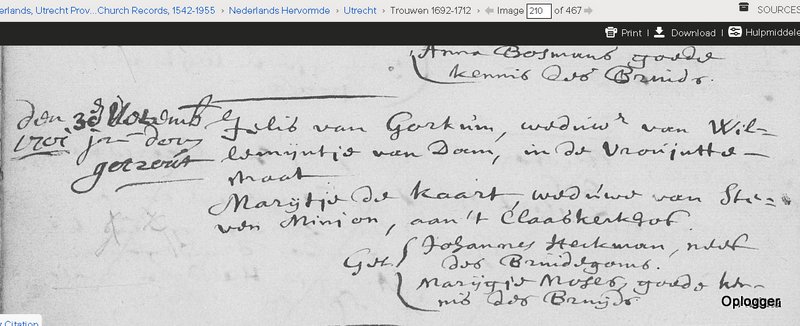 erlands, Utrecht Prov...Church Records, 1542-1955 > Nederlands Hervormde > Utrecht > Trouwen 1692-1712 > Image 210 of 467 SOURCES
Print | Download | Hulpmiddele
Anna Bosmans goede
kennis des Bruids.
den 30 Novemb
1701
getrout
Jelis van Gorkum, weduwr van Wil=
lemijntje van Dam, in de Vroujutte-
straat
Marijtje de Kaart, weduwe van Ste=
ven Minjon, aan't Claaskerkhof.
Get Johannes Heckman, neef
des Bruidegoms.
Marijtje Moses, goede ken-
nis des Bruijds
Oplogger
r Citation